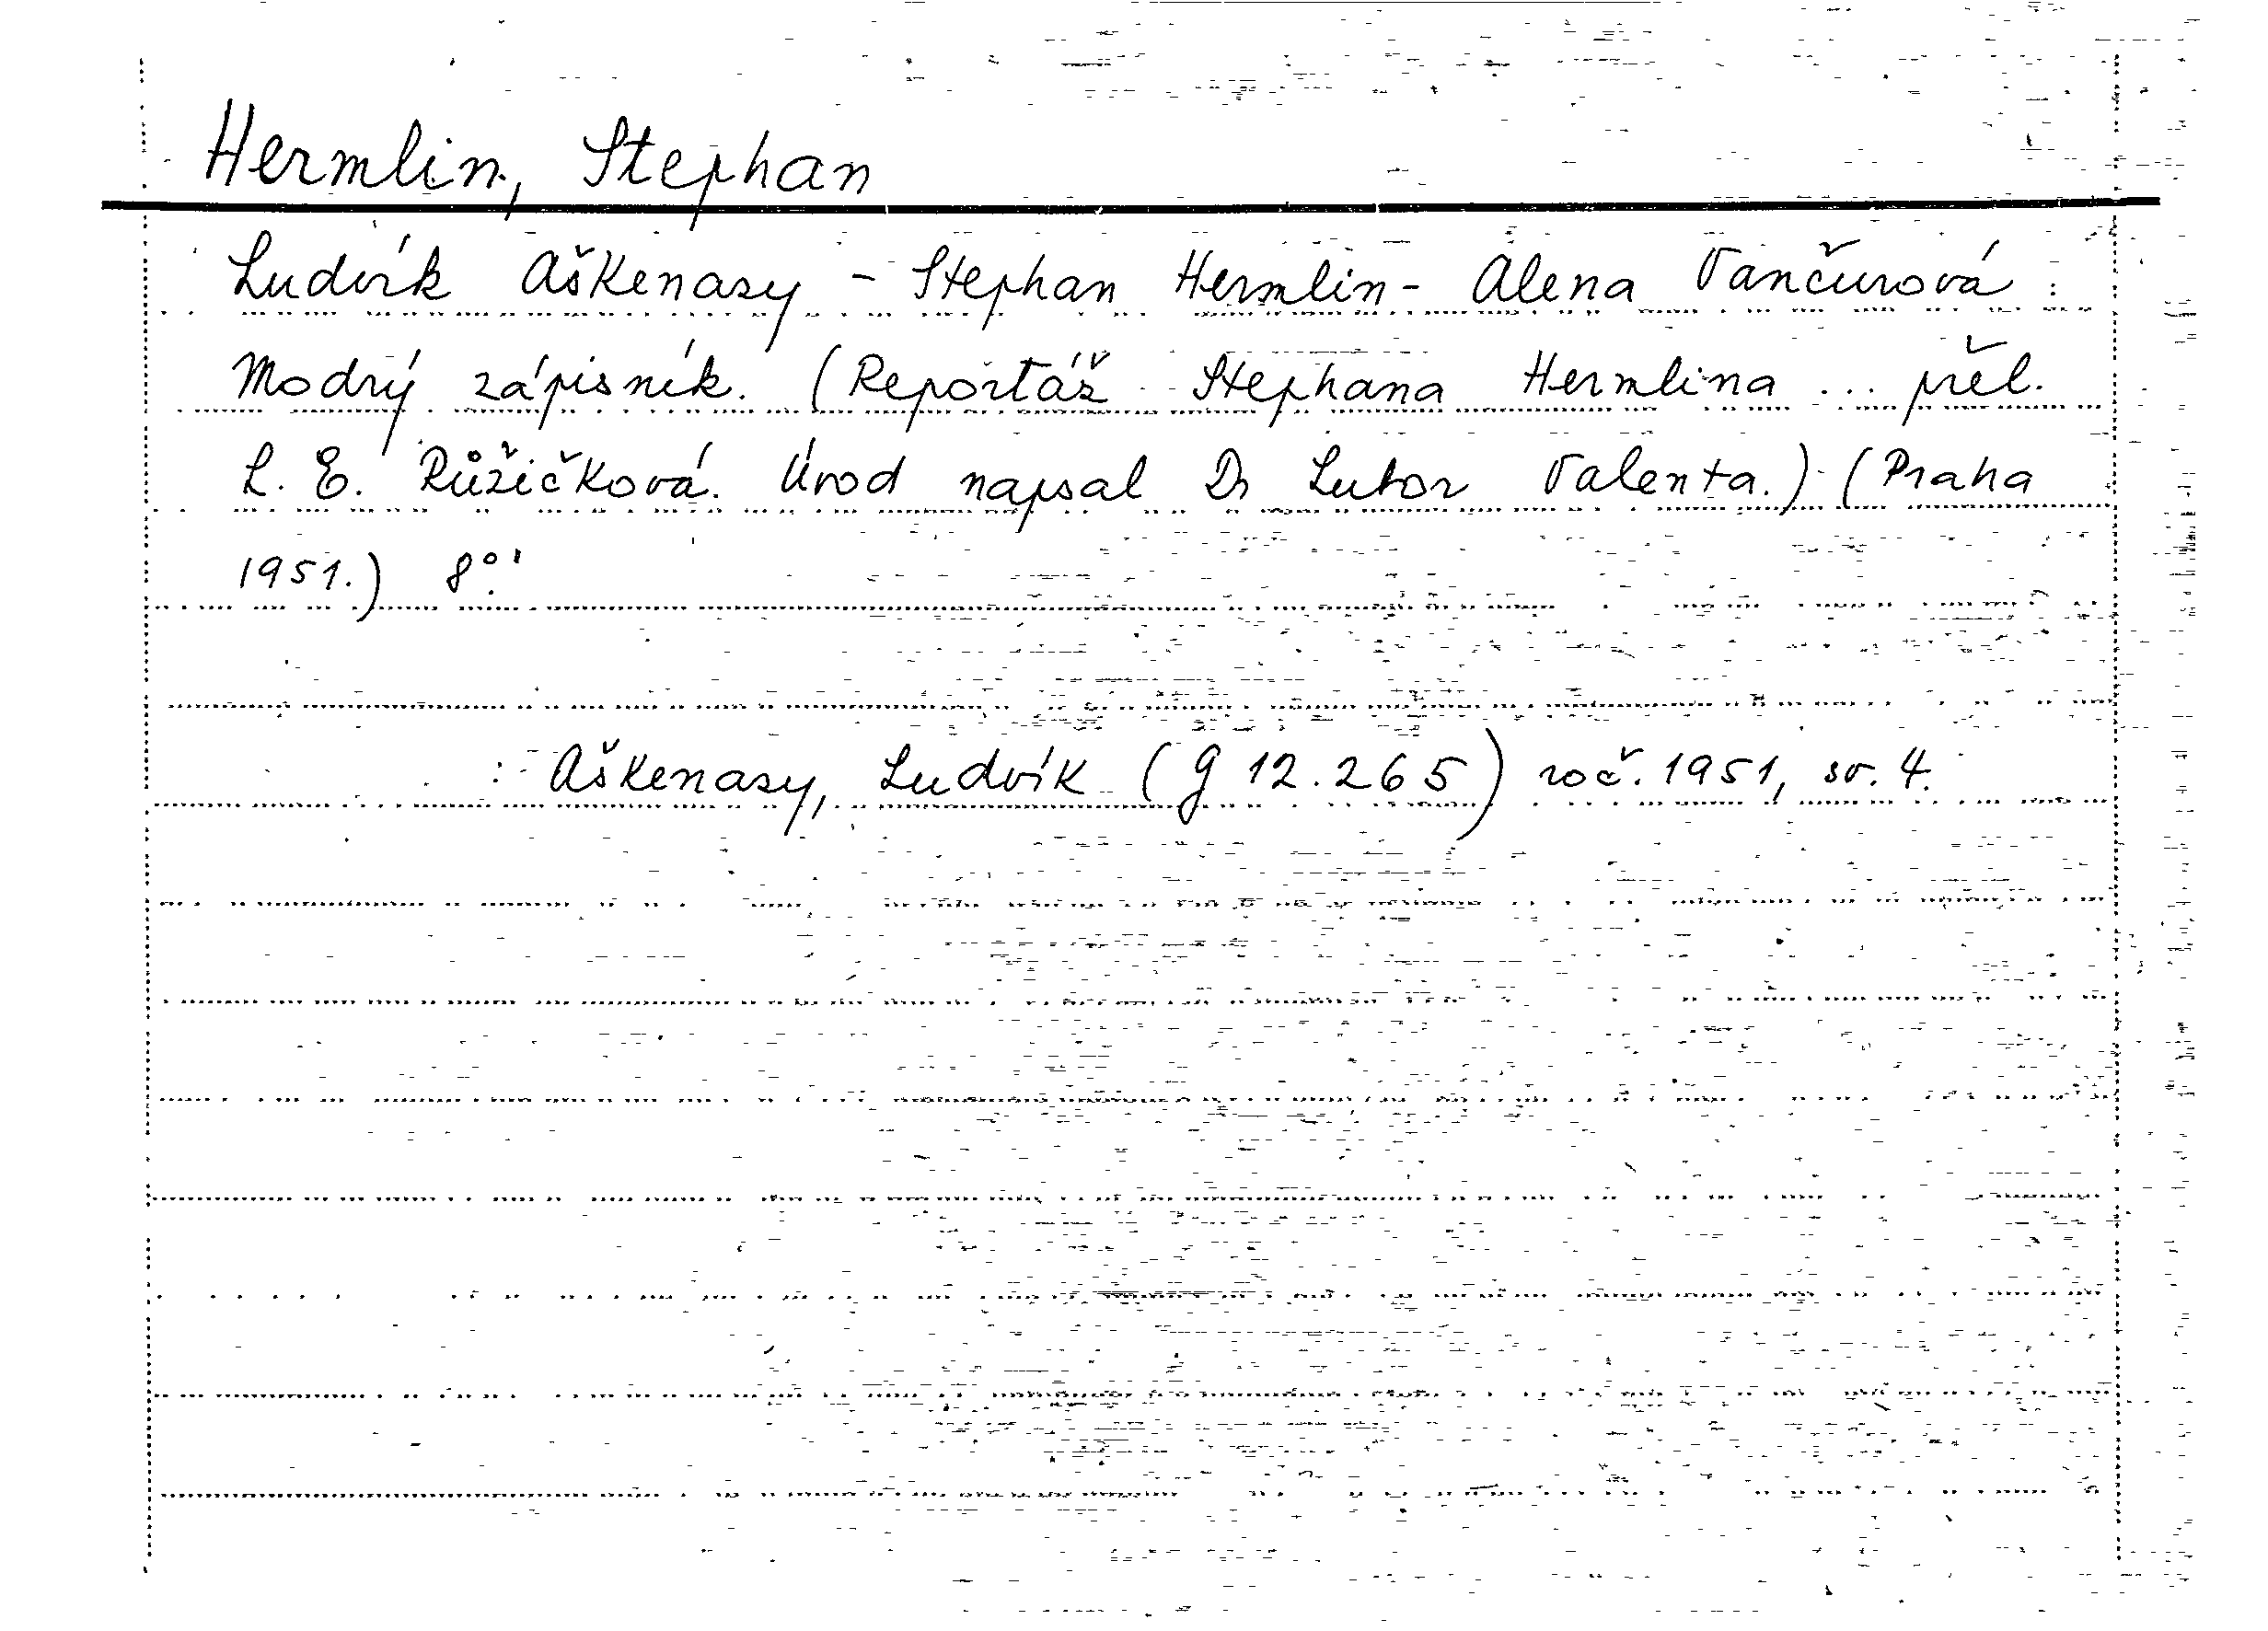 Hermlin, Stephan
Ludvík Aškenasy - Stephan Hermlin - Alena Vančurová :
Modrý zápisník. (Reportáž Stephana Hermlina ... přel.
L. E. Růžičková. Úvod napsal Dr Lubor Valenta.) (Praha
1951.) 8°.
: Aškenasy, Ludvík (G 12.265) roč. 1951, sv. 4.